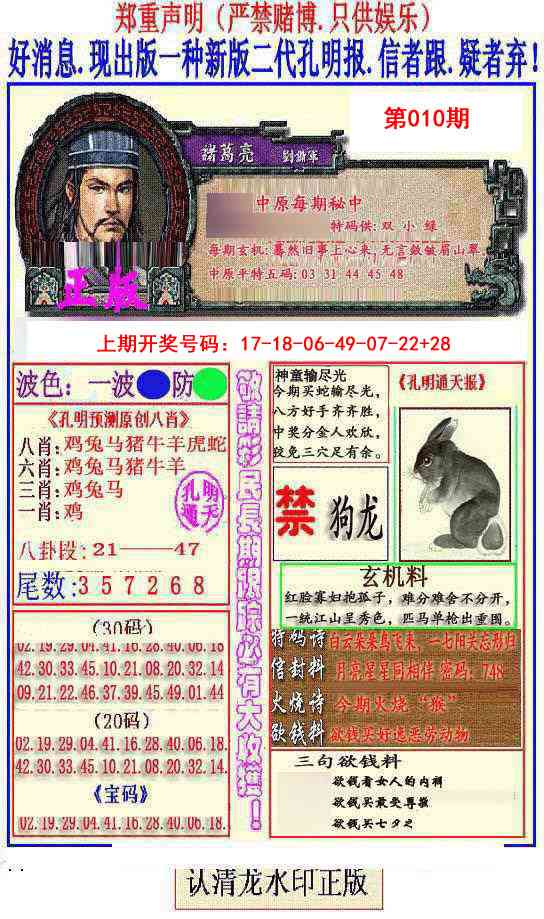 郑重声明（严禁赌博.只供娱乐）
好消息.现出版一种新版二代孔明报.信者跟.疑者弃！
第010期
諸葛亮 劉謝軍
中原每期秘中
特码供: 双 小 绿
每期玄机: 蓦然旧事上心来, 无言敛皱眉山翠.
中原平特五码: 03 31 44 45 48
正版
上期开奖号码：17-18-06-49-07-22+28
波色：一波 防
《孔明预测原创八肖》
八肖:鸡兔马猪牛羊虎蛇
六肖:鸡兔马猪牛羊
三肖:鸡兔马
一肖:鸡
孔明
通天
八卦段: 21——47
尾数: 3 5 7 2 6 8
(30码)
02.19.29.04.41.16.28.40.06.18
42.30.33.45.10.21.08.20.32.14
09.21.22.46.37.39.45.49.01.44
(20码)
02.19.29.04.41.16.28.40.06.18.
42.30.33.45.10.21.08.20.32.14.
《宝码》
02.19.29.04.41.16.28.40.06.18.
敬請彩民長期跟踪必有大收獲！
神童输尽光
今期买蛇输尽光，
八方好手齐齐胜，
中奖分金人欢欣，
狡兔三穴足有余。
《孔明通天报》
禁 狗龙
玄机料
红脸寡妇抱孤子，难分难舍不分开，
一统江山呈秀色，匹马单枪出重围。
特码诗 白云朵朵鸟飞来，一七阳关忘形归
信封料 月亮星星同相伴 密码：748
火烧诗 今期火烧“猴”
欲钱料 欲钱买好追恶劳动物
三句欲钱料
欲钱看女人的内裤
欲钱买最受尊敬
欲钱买七夕之
认清龙水印正版